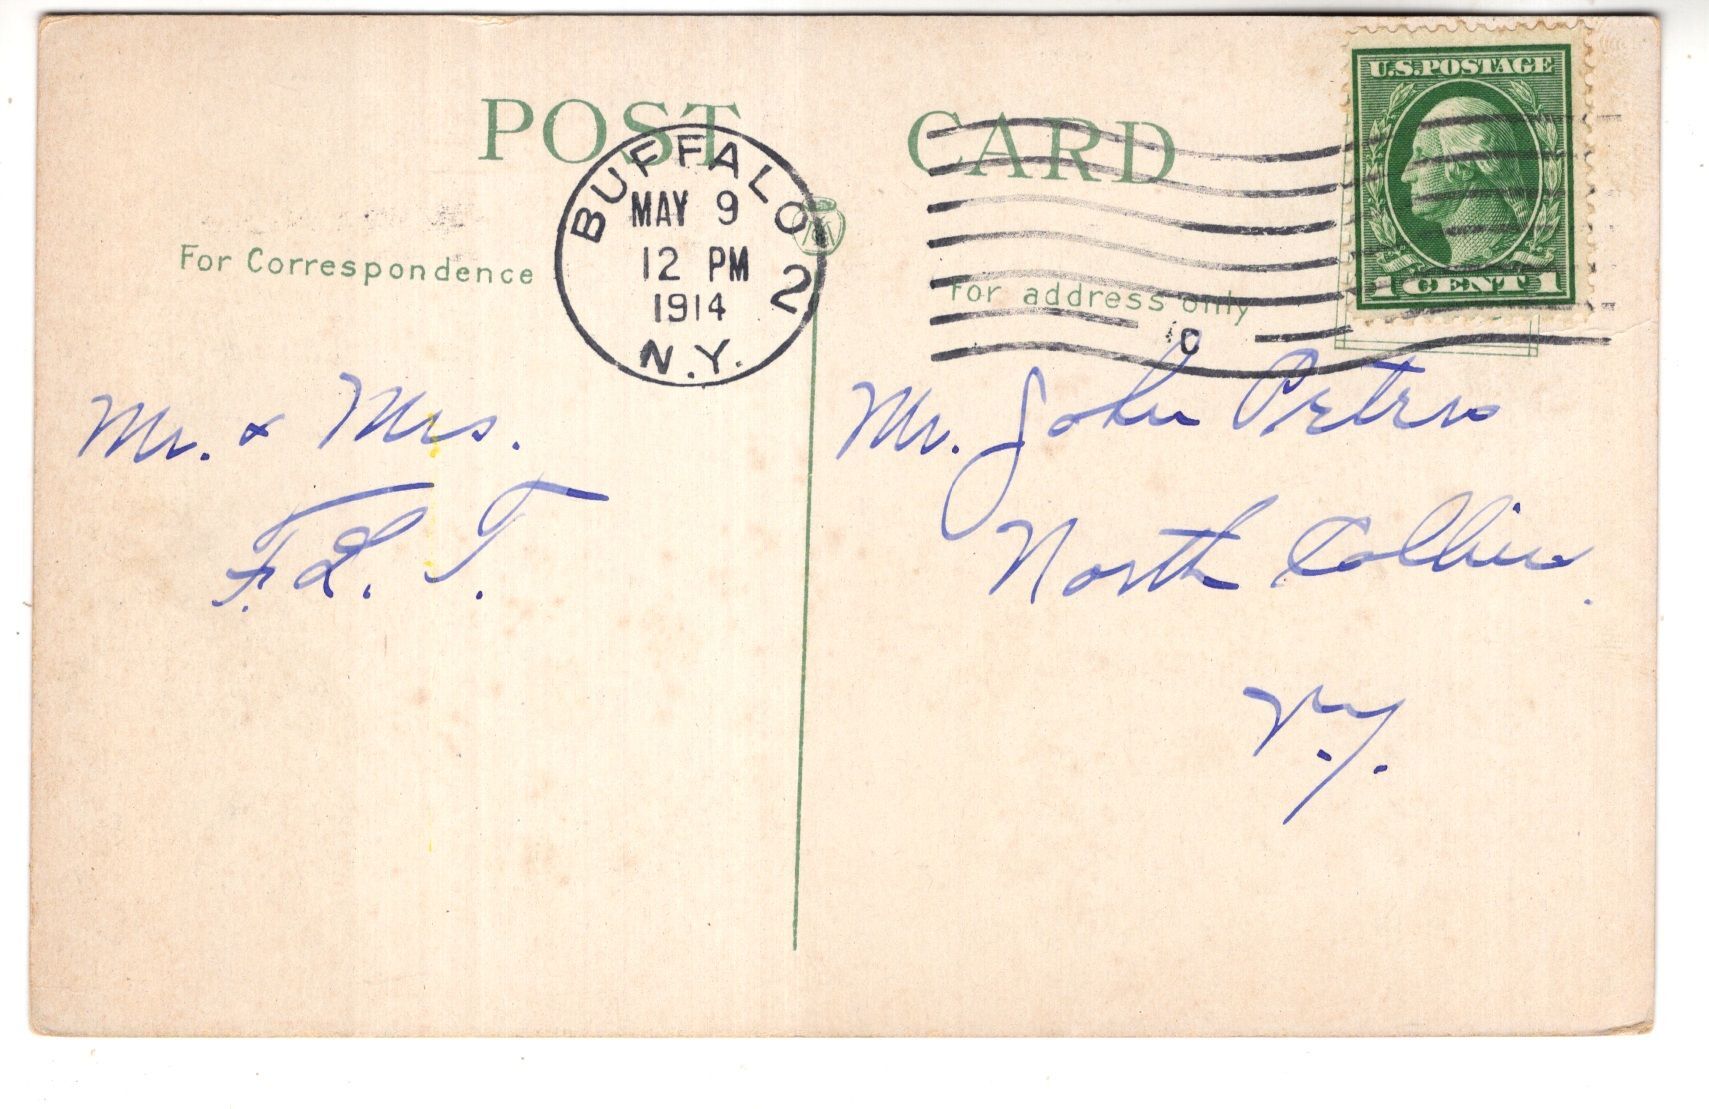 POST CARD
U.S.POSTAGE
1 CENT 1
BUFFALO 2
MAY 9
12 PM
1914
N.Y.
For Correspondence
For address only
C
Mr. & Mrs.
F. L. T.
Mr. John Peters
North Collins.
N.Y.